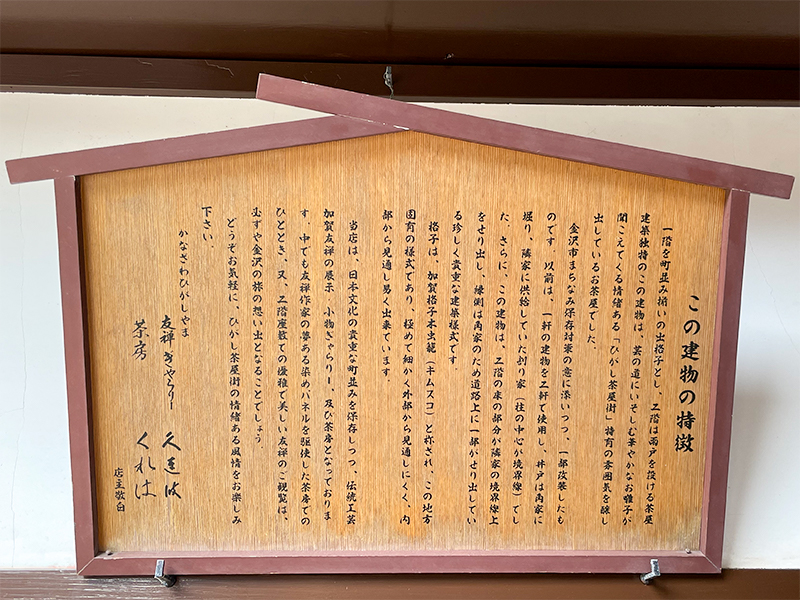 この建物の特徴
一階を町並み揃いの出格子とし、二階は雨戸を設ける茶屋
建築独特のこの建物は、芸の道にいそしむ華やかなお囃子が
聞こえてくる情緒ある「ひがし茶屋街」特有の雰囲気を醸し
出しているお茶屋でした。
金沢市まちなみ保存対策の意に添いつつ、一部改装したも
のです。以前は、一軒の建物を二軒で使用し、井戸は両家に
堀り、隣家に供給していた割り家(柱の中心が境界線)でし
た。さらに、この建物は、二階の床の部分が隣家の境界線上
をせり出し、縁側は両家のため道路上に一部がせり出してい
る珍しく貴重な建築様式です。
格子は、加賀格子木虫籠(キムスコ)と称され、この地方
固有の様式であり、極めて細かく外部から見通しにくく、内
部から見通し易く出来ています。
当店は、日本文化の貴重な町並みを保存しつつ、伝統工芸
加賀友禅の展示、小物ぎゃらりー、及び茶房となっておりま
す。中でも友禅作家の夢ある染めパネルを駆使した茶房での
ひととき、又、二階座敷での優雅で美しい友禅のご観覧は、
必ずや金沢の旅の想い出となることでしょう。
どうぞお気軽に、ひがし茶屋街の情緒ある風情をお楽しみ
下さい。
かなざわひがしやま
友禅ぎゃらりー 久連波
茶房 くれは
店主敬白